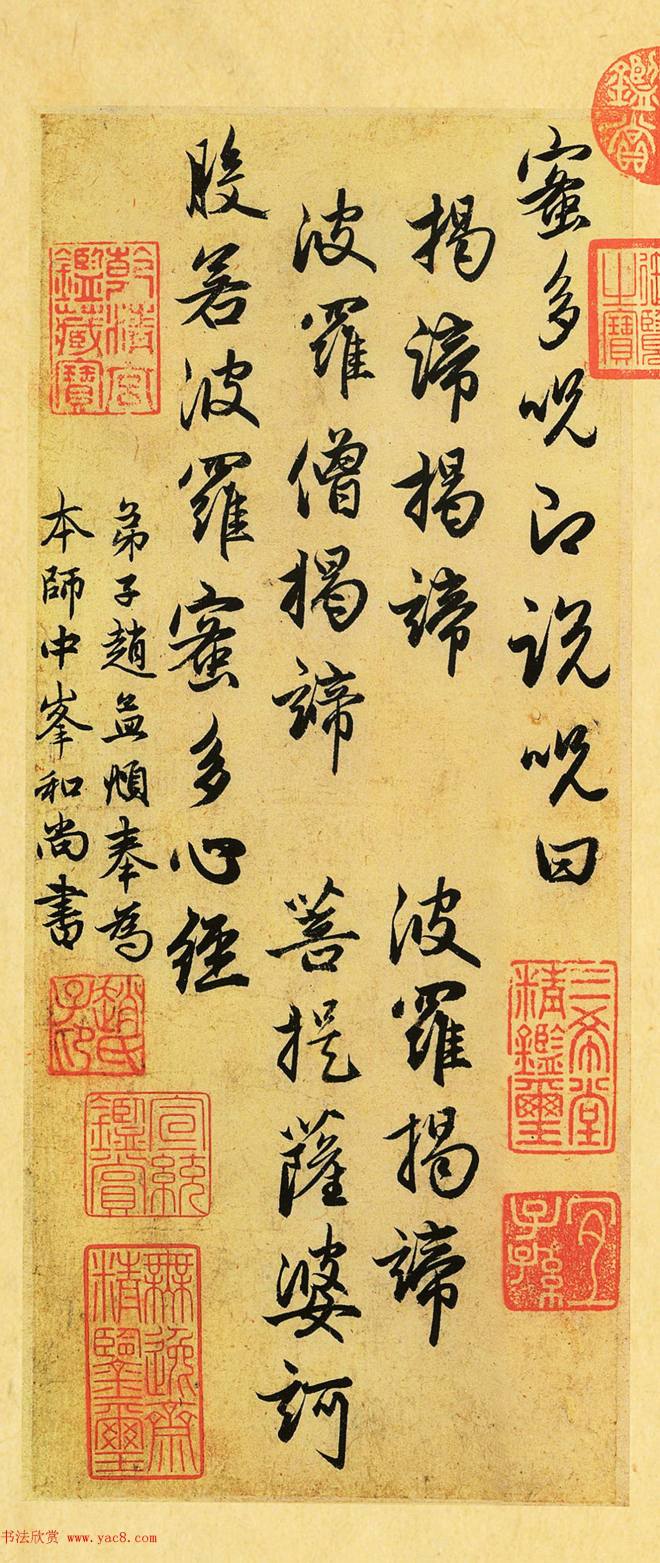 蜜多呪即說呪曰
揭諦揭諦 波羅揭諦
波羅僧揭諦 菩提薩婆訶
般若波羅蜜多心經
弟子趙孟頫奉為
本師中峯和尚書
鑑賞
御覽之寶
三希堂精鑑璽
宜子孫
乾清宮鑑藏寶
趙氏子印
宣統鑑賞
無逸齋精鑒璽
书法欣赏 www.yac8.com